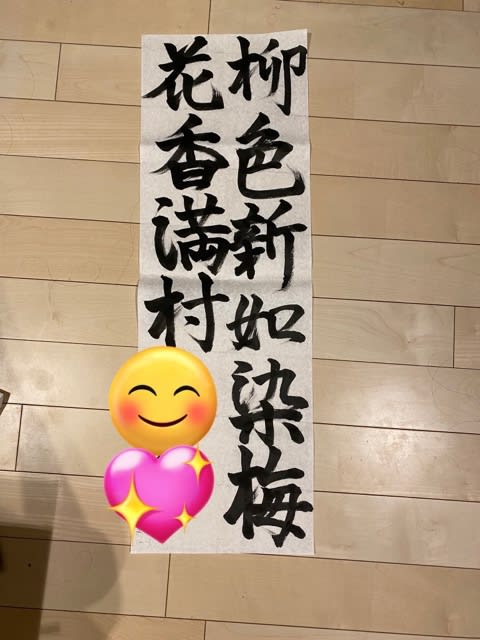 柳色新如染梅
花香満村